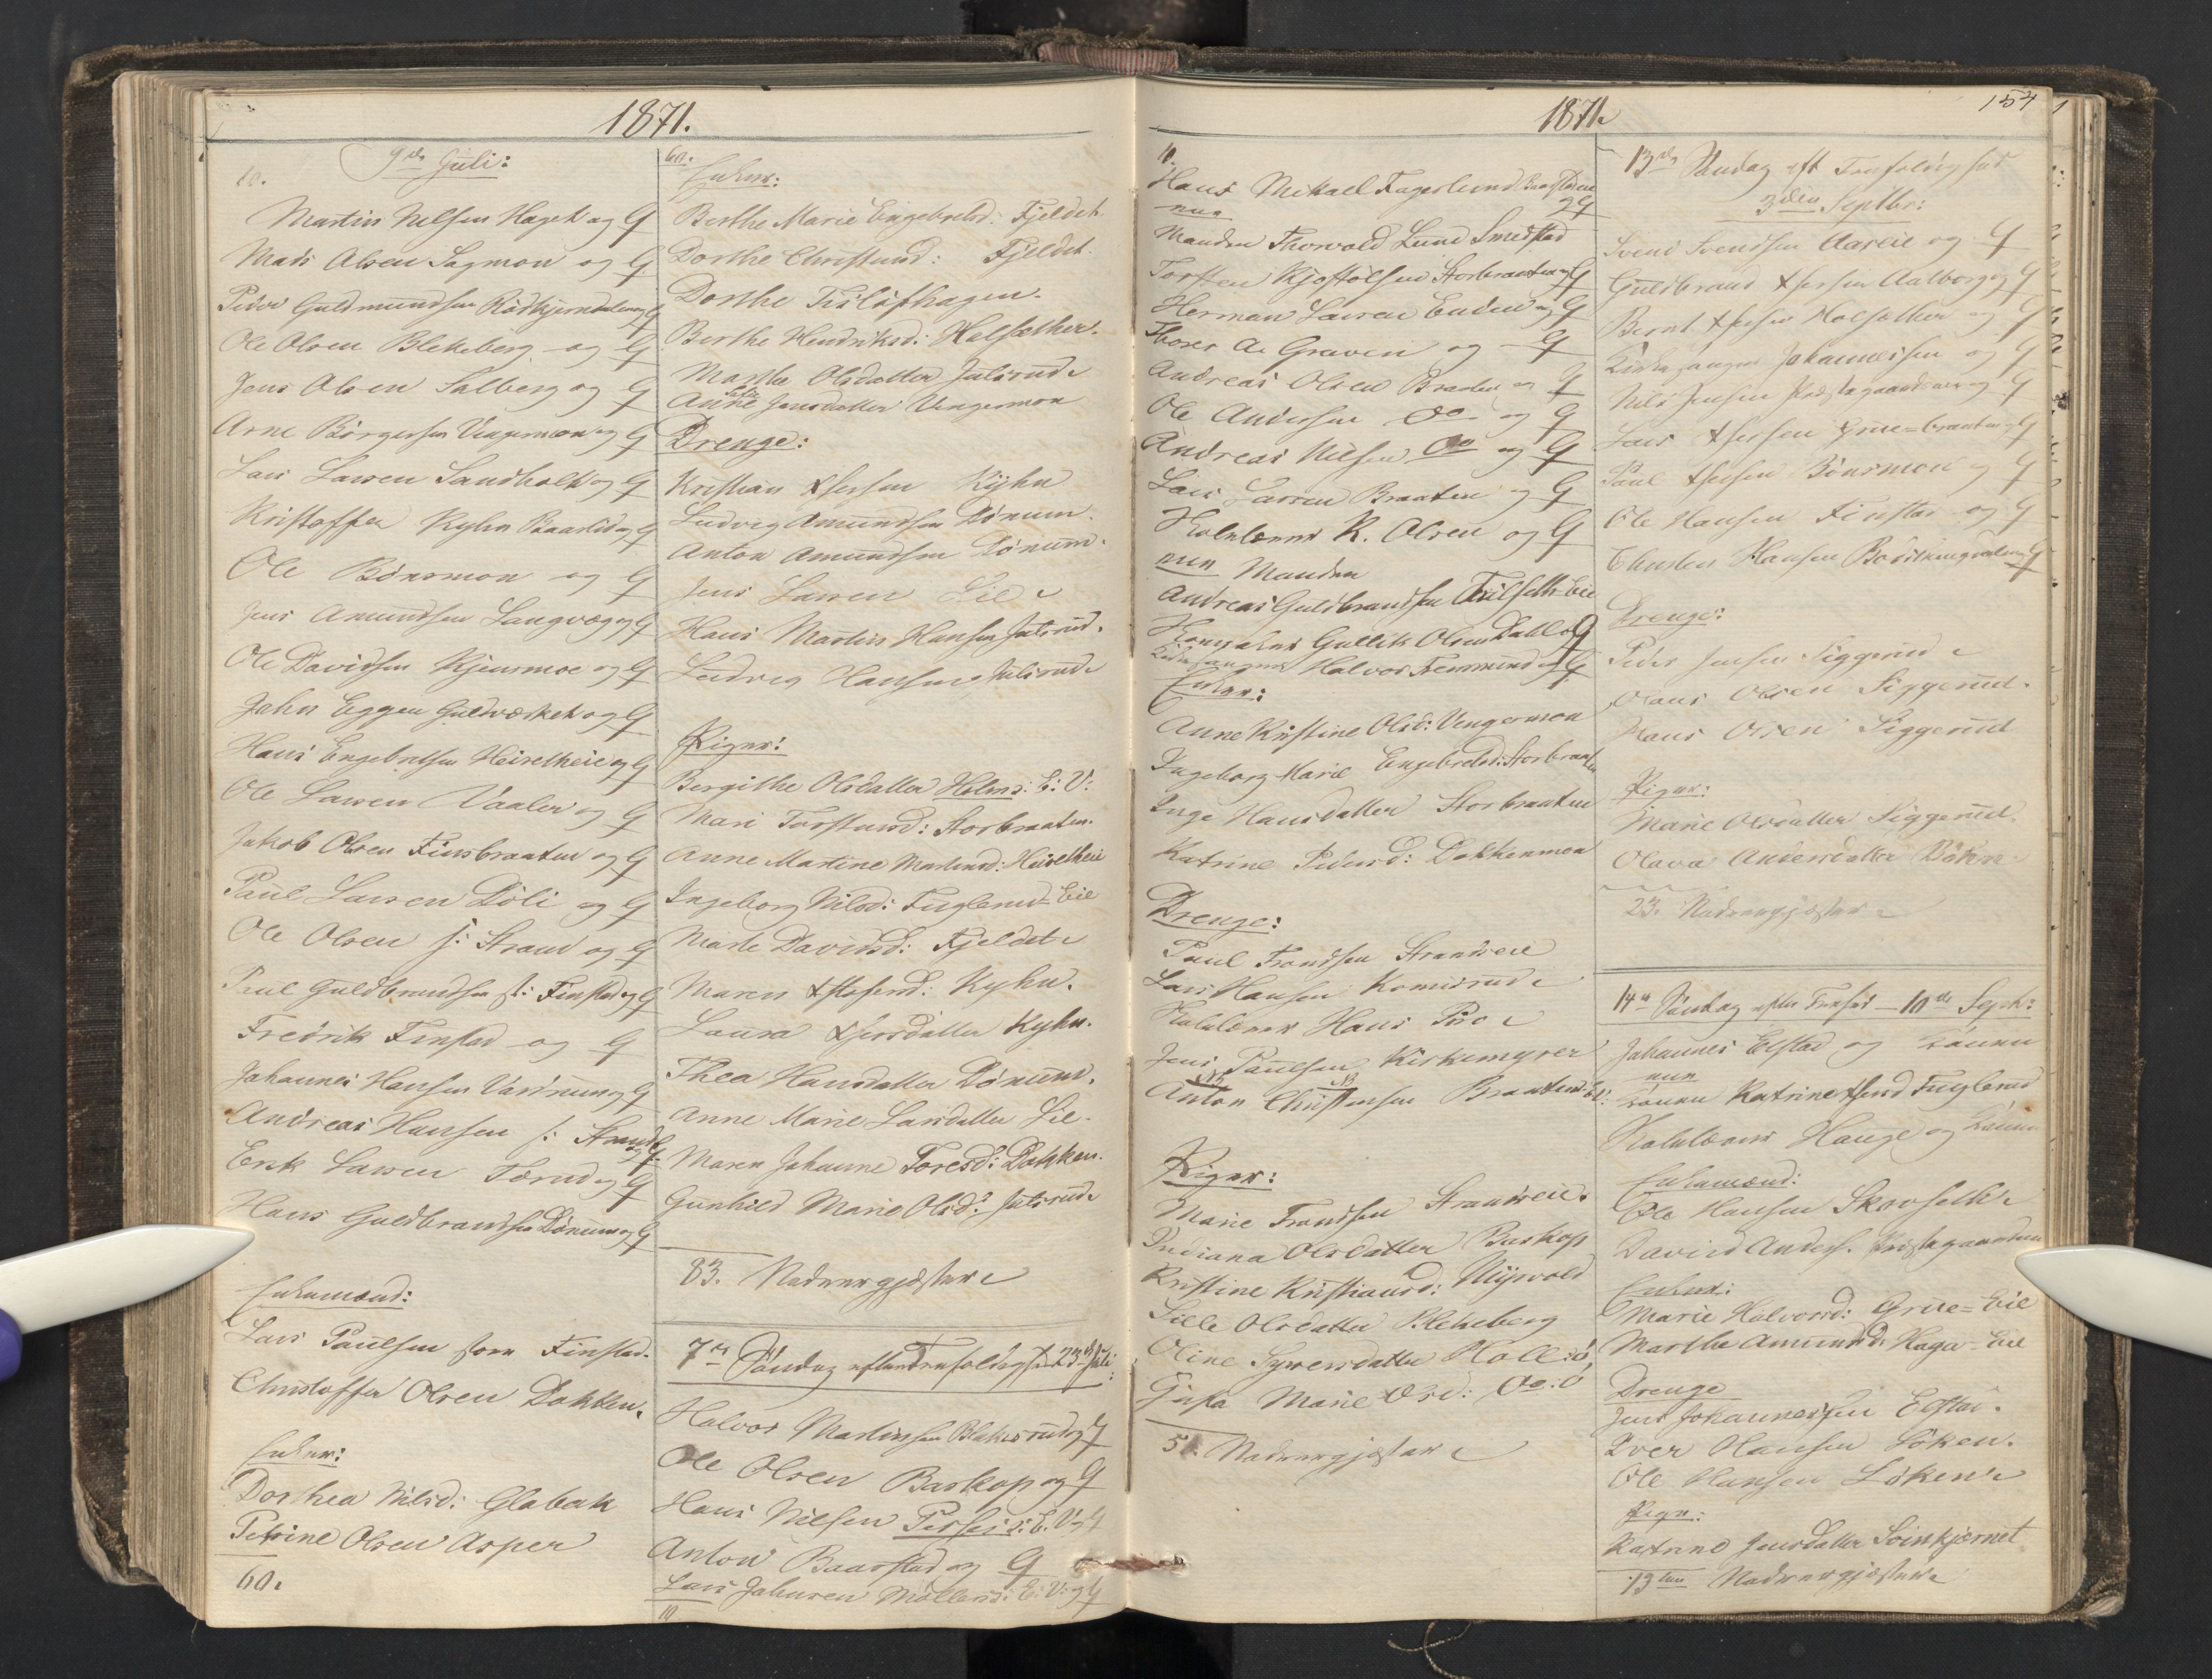 1871.
9de Juli:
10.
Martin Nelsen Haget og G
Mads Olsen Sagmon og G
Peder Guldmundsen Rødkjerndalen og G
Ole Olsen Blekeberg og G
Jens Olsen Solberg og G
Arne Børgersen Vengermoen og G
Lars Larsen Sandholt og G
Kristoffer Kyhn Baarlid og G
Ole Bönsmon og G
Jens Amundsen Langvæg og G
Ole Davidsen Kjensmoe og G
John Eggen Guldværket og G
Hans Engebretsen Heiretheie og G
Ole Larsen Vaaler og G
Jakob Olsen Finsbraaten og G
Paul Larsen Döli og G
Ole Olsen s: Strand og G
Paul Guldbrandsen st: Finstad og G
Fredrik Finstad og G
Johannes Hansen Vardnum og G
Andreas Hansen s: Strand og G
Erik Larsen Tærud og G
Hans Guldbrandsen Dönnum og G
Enkemænd:
Lars Paulsen store Finstad.
Christoffer Olsen Dokken.
Enker:
Dorthea Nilsd: Globak
Petrine Olsen Asper
60.
60.
Enker:
Berthe Marie Engebretsd: Fjeldet.
Dorthe Christensd: Fjeldet.
Dorthe Tislöfhagen.
Berthe Hendriksd: Holsæther.
Marthe Olsdatter Julsrud.
Anne Jensdatter Vengermoen
Drenge:
Kristian Xhersen Kyhn
Ludvig Amundsen Dönum.
Anton Amundsen Dönum.
Jens Larsen Lie.
Hans Martin Hansen Julsrud.
Ludvig Hansen Julsrud.
Piger:
Bergithe Olsdatter Holms: E: V:
Mari Torstensd: Storbraaten.
Anne Martine Martinsd: Heiretheie
Ingeborg Nilsd: Fuglerud-Eie
Marte Davidsd: Fjeldet.
Maren Xstofersd: Kyhn.
Laura Xhersdatter Kyhn.
Thea Hansdatter Dönum.
Anne Marie Larsdatter Lie.
Maren Johanne Toresd: Dokken.
Gunhild Marie Olsd: Julsrud.
83. Nadvergjæster.
7de Söndag efter Trefoldighed 23de Juli:
Halvor Martinsen Blakersrud og G
Ole Olsen Baskop og G
Hans Nilsen Tesses: E. V. og G
Anton Baarstad og G
Lars Johnsen Möllers: E: V: og G
10
1871.
154
10.
Hans Mikael Fagerlund Baastad
og G
nun
Manden Thorvald Lund Smedstad
Torsten Kjøstolsen Storbraaten og G
Herman Larsen Enden og G
Thores A. Graven og G
Andreas Olsen Braaten og G
Ole Andersen Do og G
Andreas Nilsen Do og G
Lars Larsen Braaten og G
Skolelærer K. Olsen og G
nun Manden
Andreas Guldbrandsen Trilseth-Eie
Gullik Olsen Dahl og G
Kirkesanger Halvor Fremmend og G
Enker:
Anne Kristine Olsd: Vengermoen
Ingeborg Marie Engebretsd: Storbraaten
Inge Hansdatter Storbraaten
Katrine Pedersd: Dokkenmoen
Drenge:
Paul Frandsen Strandeie
Lars Hansen Komisrud.
Skolelærer Hans Pio.
Jens Paulsen Kirkemyrer
Anton Christensen Braaten-Eie:
Piger:
Marie Frandsen Strandeie.
Indiana Olsdatter Baskop
Kristine Kristiansd: Nyvold
Sille Olsdatter Blekeberg
Oline Syversdatter Hollie
Marie Olsd: Do:
51. Nadvergjæster.
13de Söndag eft Trefoldighed
3die Septbr:
Svend Svendsen Aaseie og G
Guldbrand Xhersen Aalborg og G
Bernt Xhersen Holsæther og G
Kirkesanger Johannessen og G
Nils Jensen Præstegaardseie og G
Lars Xhersen Grue-braaten og G
Paul Xhersen Bönsmoen og G
Ole Hansen Finstad og G
Christen Hansen og G
Drenge:
Peder Jensen Siggerud.
Olaus Olsen Siggerud.
Hans Olsen Siggerud
Piger:
Marie Olsdatter Siggerud.
Olava Andersdatter Döhn
23. Nadvergjæster.
14de Söndag efter Trefold – 10de Septb:
Johannes Elstad og Konen
nun
Konen Katrine Xhersd Fuglerud
Skolelærer Hauge og Konen
Enkemænd:
Ole Hansen Skovseth.
David Anders. Præstegaarden
Enker:
Marie Halvorsd: Grue-Eie
Marthe Amundsd: Haga-Eie
Drenge
Jens Johannessen Elstad.
Iver Hansen Löken.
Ole Hansen Löken.
Piger:
Katrine Jensdatter Svinkjernet
13ten Nadvergjæster.